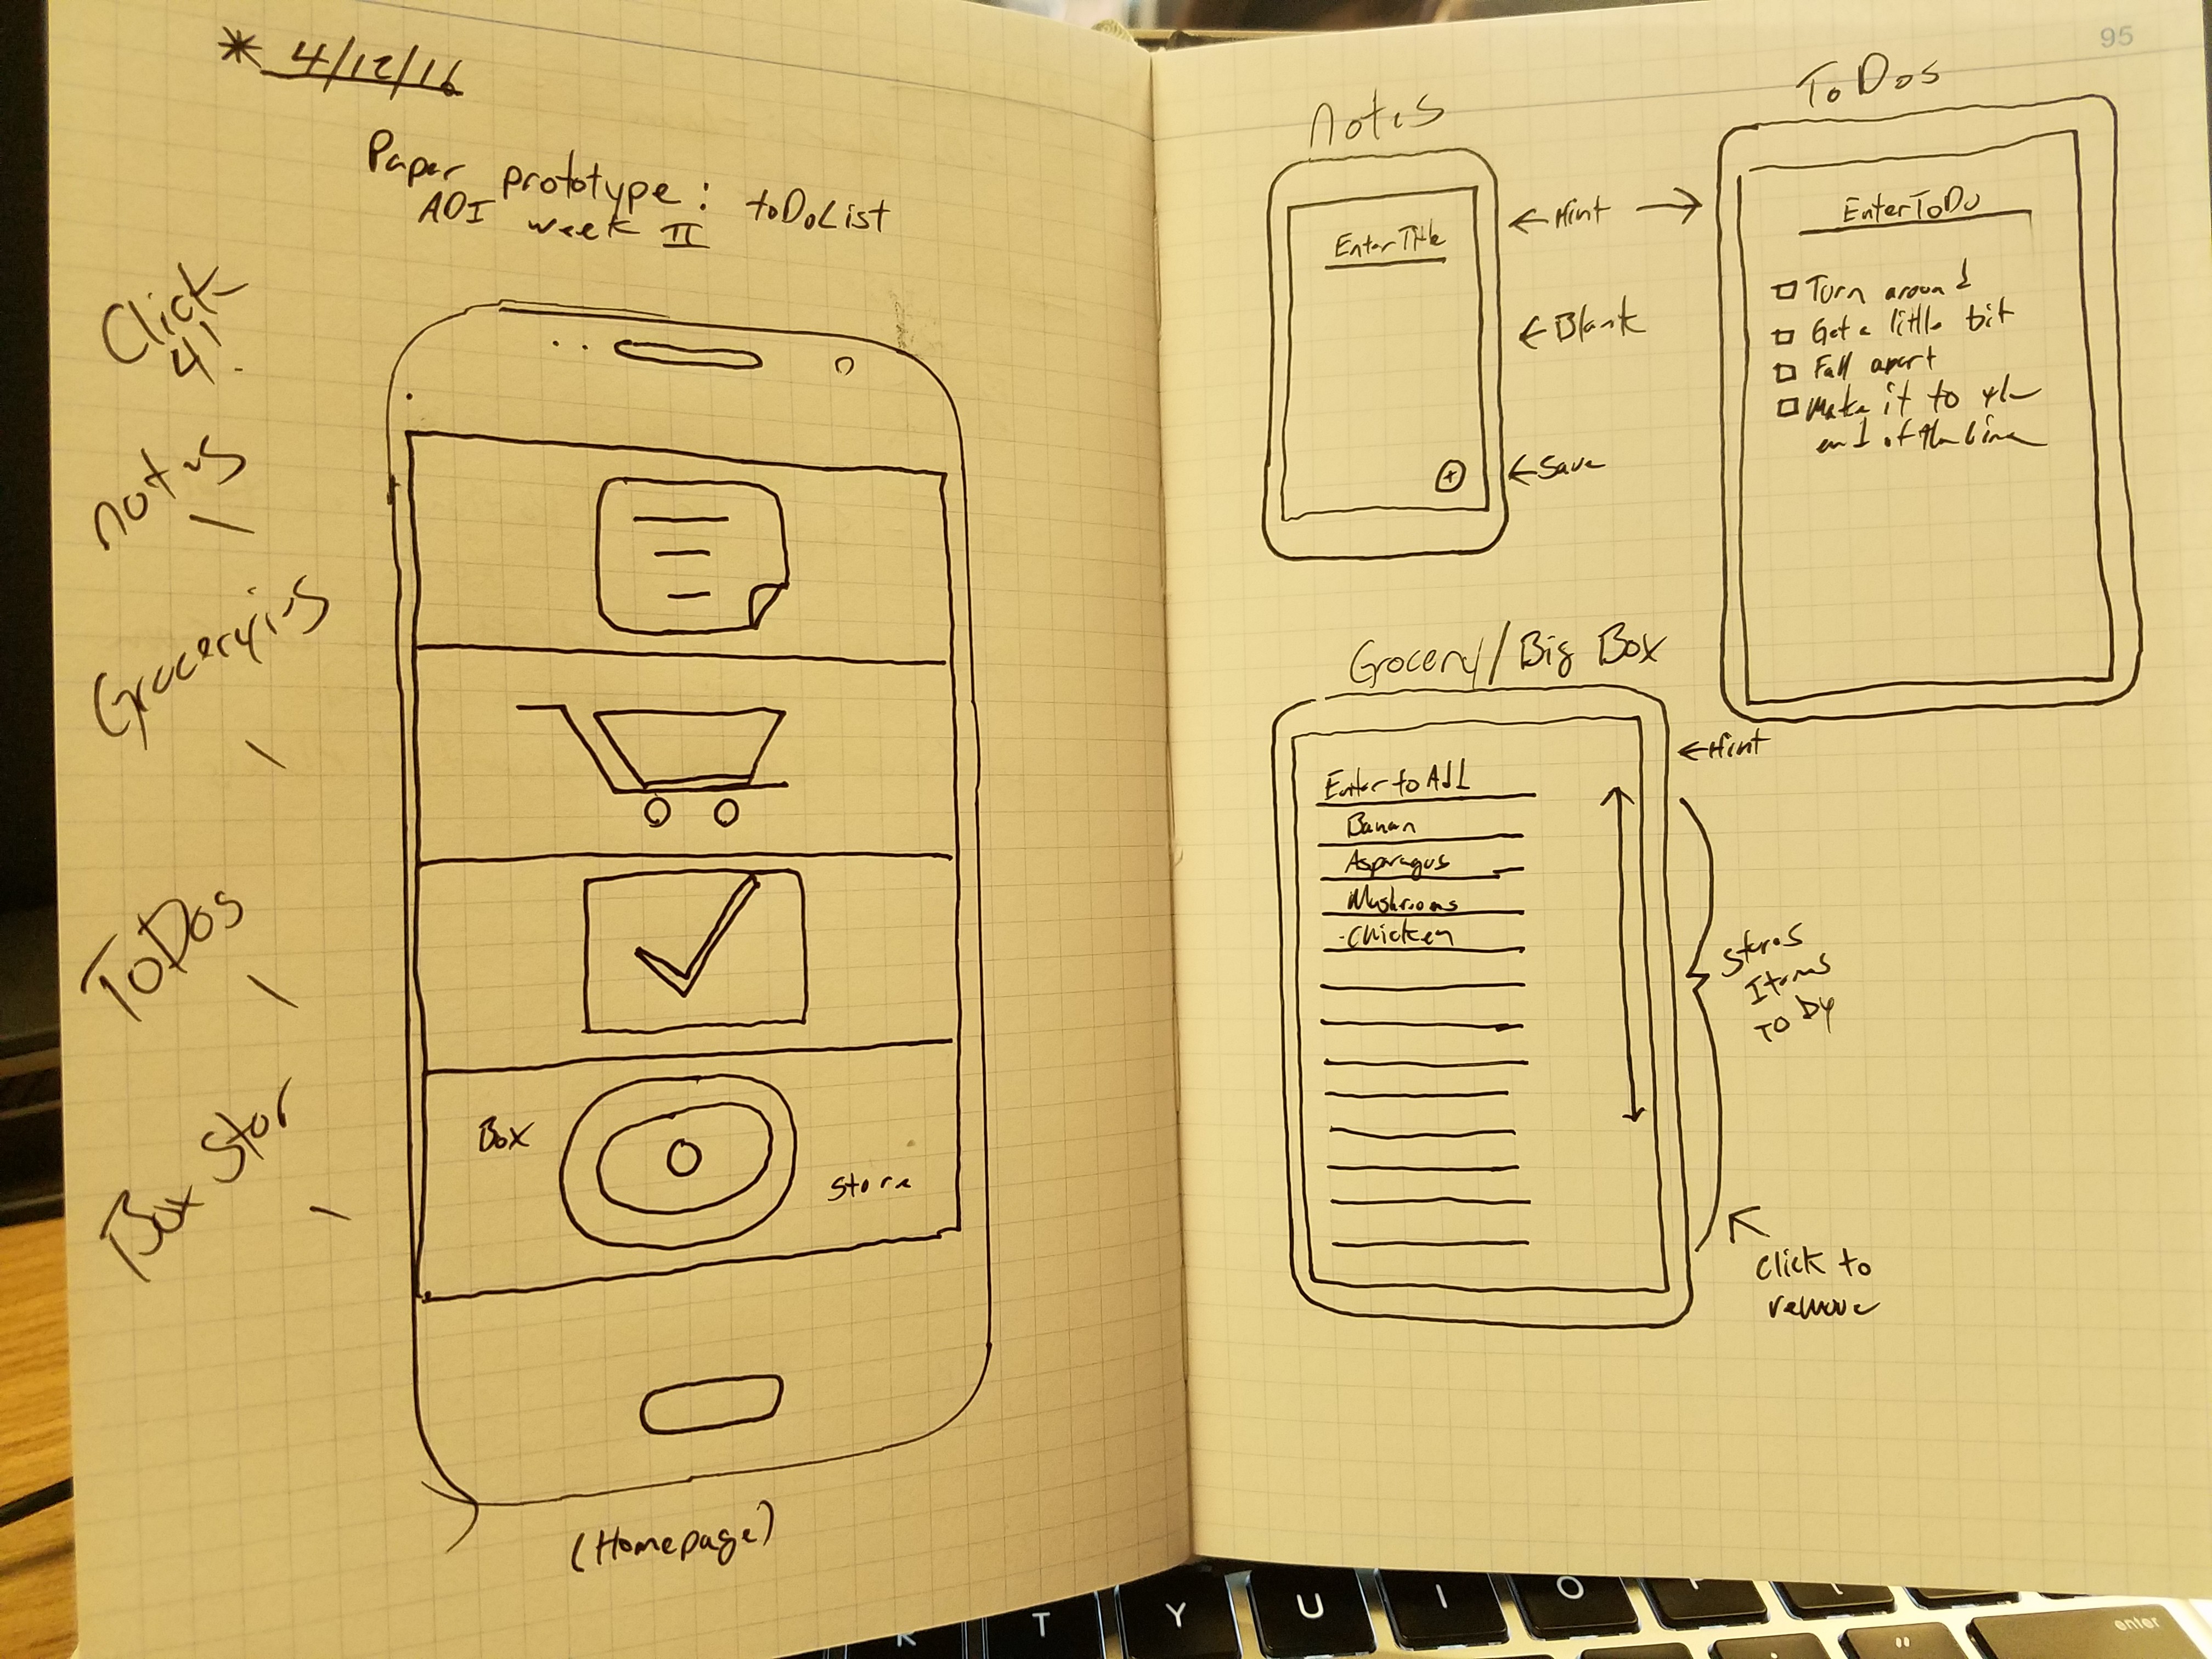 * 4/12/16
Paper prototype: toDoList
ADI week II
Click
4!
notes
Grocery
ToDos
Box Stor
Box
Store
(Homepage)
95
Notes
Enter Title
← Hint →
← Blank
+
← Save
ToDos
Enter ToDo
Turn around
Get a little bit
Fall apart
Make it to the
end of the line
Grocery/Big Box
← Hint
Enter to Add
Banan
Asparagus
Mushrooms
Chicken
Stores
Items
To By
Click to
remove
R T Y U I O P
enter